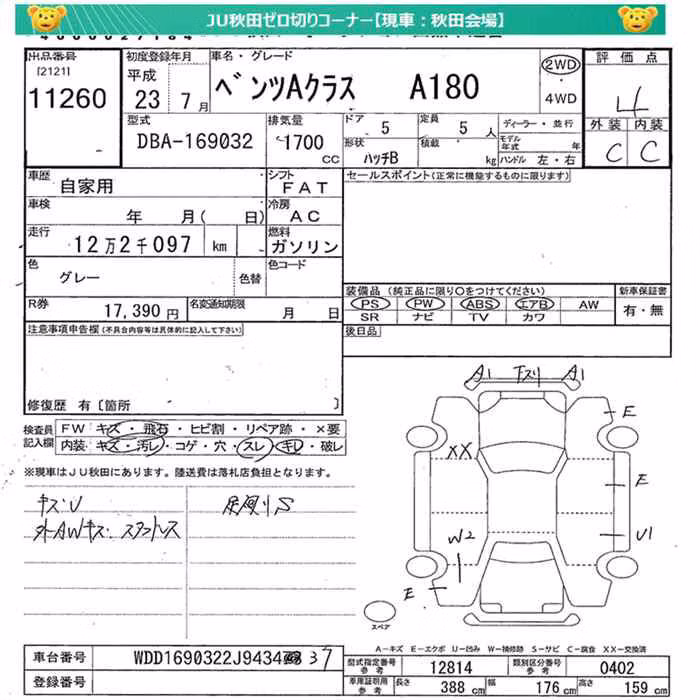 JU秋田ゼロ切りコーナー【現車：秋田会場】
出品番号 [2121] 11260
初度登録年月 平成 23年 7月
車名・グレード ベンツAクラス A180
2WD ・ 4WD
評価点 4
外装 内装
C C
型式 DBA-169032
排気量 1700 CC
ドア 5
定員 5 人
形状 ハッチB
積載 kg
ディーラー・並行
モデル年式 年
ハンドル 左・右
車歴 自家用
シフト FAT
セールスポイント(正常に機能するものに限ります)
車検 年 月( 日)
冷房 AC
走行 12万2千097 km
燃料 ガソリン
色 グレー 色替
色コード
装備品 (純正品に限り○をつけてください)
PS PW ABS エアB AW
SR ナビ TV カワ
新車保証書 有・無
R券 17,390 円
名変通知期限 月 日
後日品
注意事項申告欄 (不具合内容等は具体的に記入して下さい)
修復歴 有 [箇所 ]
検査員記入欄
FW キズ・飛石・ヒビ割・リペア跡・×要
内装・キズ・汚レ・コゲ・穴・スレ・キレ・破レ
※現車はJU秋田にあります。陸送費は落札店負担となります。
キズ・U
外AWキズ・スタットレス
足廻りS
A1 下スリ A1
E
XX
E
W2
U1
E
スペア
A－キズ E－エクボ U－凹み W－補修跡 S－サビ C－腐食 XX－交換済
車台番号 WDD1690322J9434 37
登録番号
型式指定番号 参考 12814
類別区分番号 参考 0402
車庫証明用 参考 長さ 388 cm 幅 176 cm 高さ 159 cm